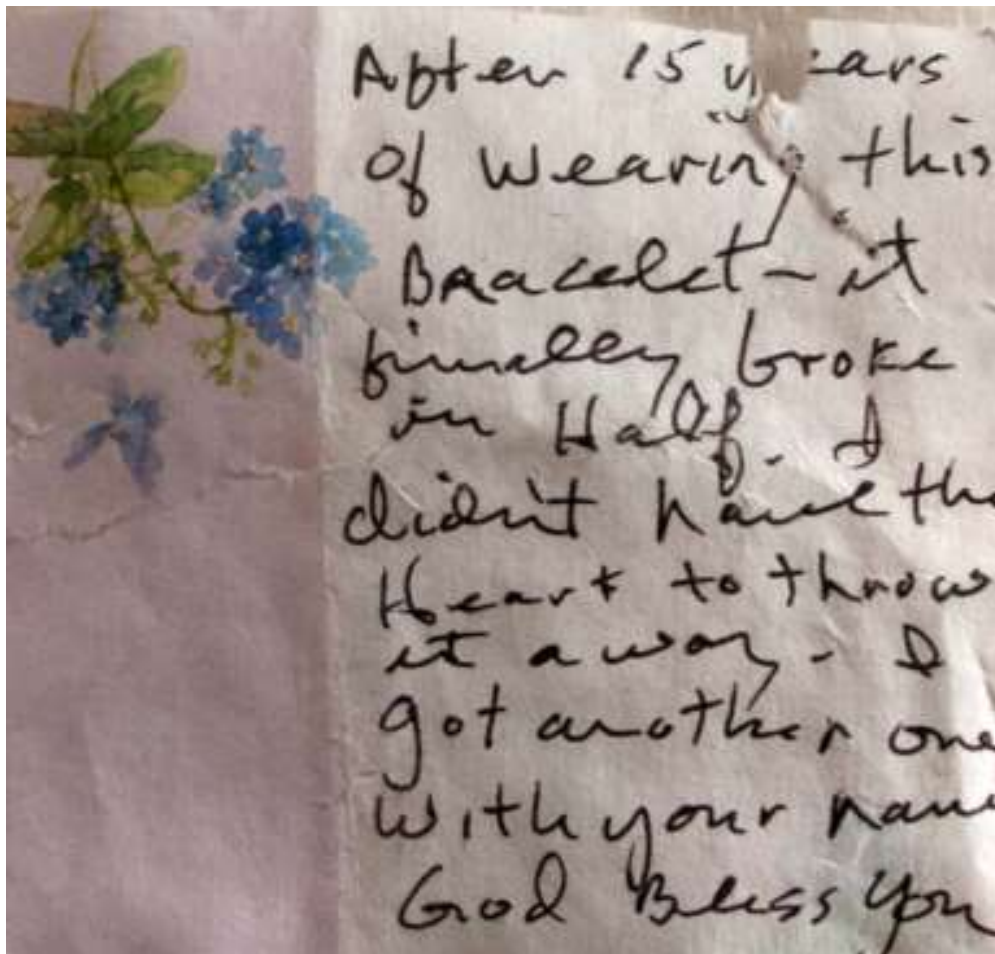 After 15 years
of wearing this
Bracelet - it
finally broke
in Half. I
didn't have the
Heart to throw
it away. I
got another one
with your name
God Bless you